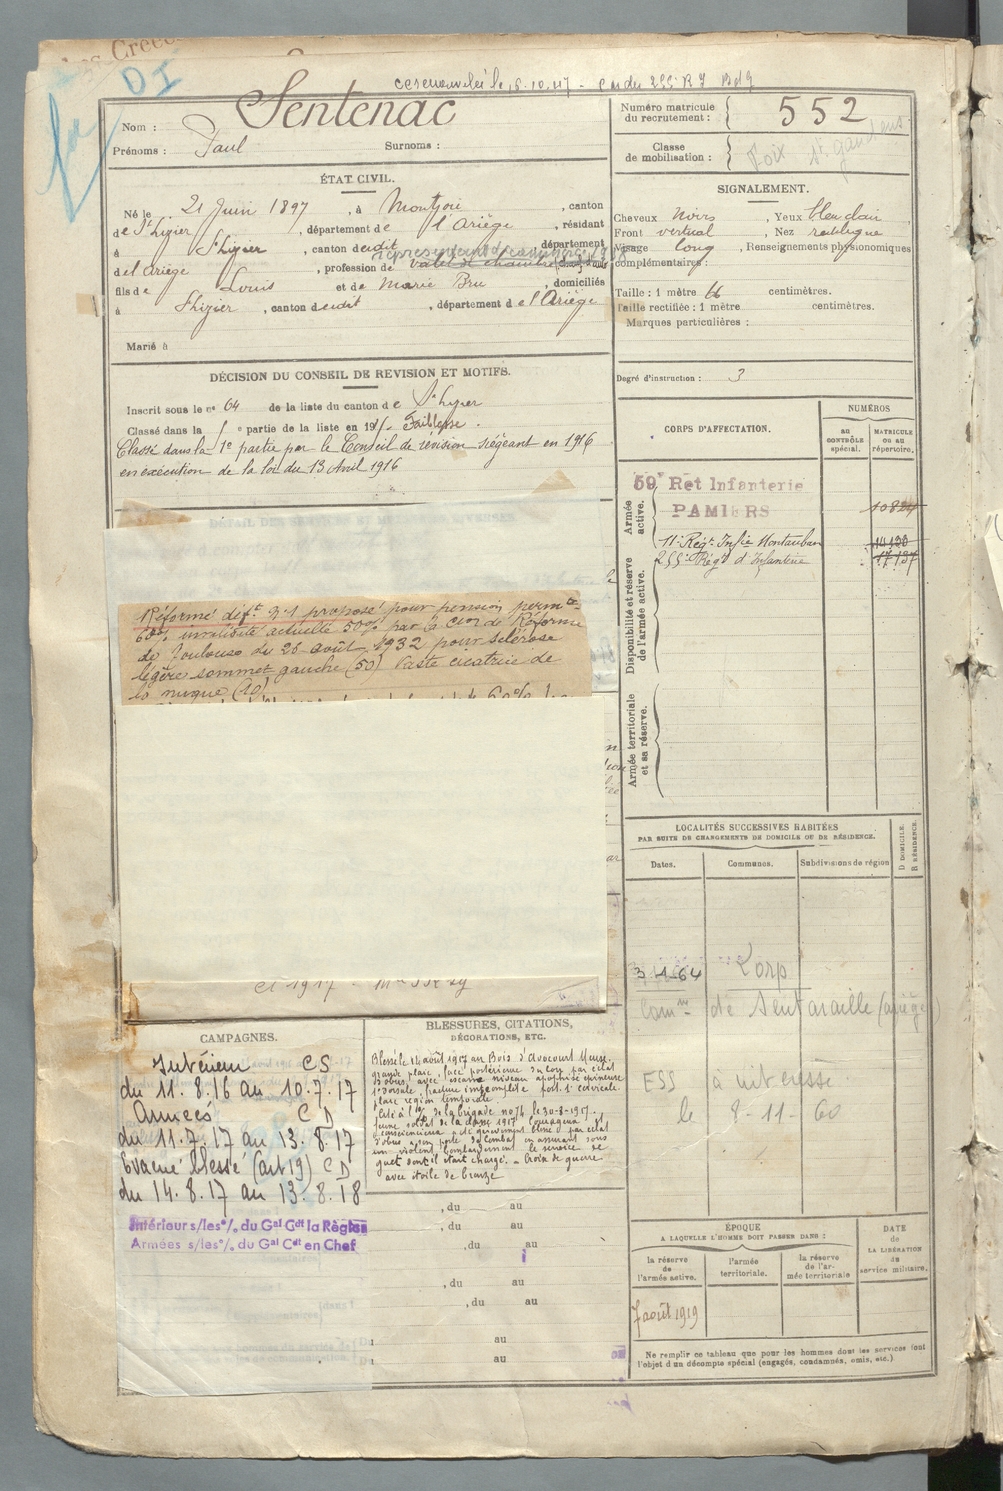 Sentenac
Nom :
Prénoms : Paul Surnoms :
Numéro matricule
du recrutement : 552
Classe
de mobilisation :
Foix St gaudens
ÉTAT CIVIL.
Né le 21 Juin 1897, à Montjoie, canton
de St Lizier, département de l'Ariège, résidant
à St Lizier, canton dudit, département
de l'Ariège, profession de valet de chambre
fils de Louis et de Marie Bru, domiciliés
à St Lizier, canton dudit, département de l'Ariège
Marié à
SIGNALEMENT.
Cheveux noirs, Yeux bleu clair,
Front vertical, Nez rectiligne
Visage long, Renseignements physionomiques
complémentaires :
Taille : 1 mètre 66 centimètres.
Taille rectifiée : 1 mètre centimètres.
Marques particulières :
Degré d'instruction : 3
DÉCISION DU CONSEIL DE REVISION ET MOTIFS.
Inscrit sous le no 64 de la liste du canton de St Lizier
Classé dans la e partie de la liste en 191 Faiblesse.
Classé dans la 1e partie par le Conseil de révision siégeant en 1916
en exécution de la loi du 13 Avril 1916
CORPS D'AFFECTATION.
NUMÉROS
au
CONTRÔLE
spécial.
MATRICULE
ou au
répertoire.
Armée
active.
59e Ret Infanterie
PAMIERS
11e Régt Infie Montauban 14120
255e Régt d'Infanterie 17137
Disponibilité et réserve
de l'armée active.
Armée territoriale
et sa réserve.
DÉTAIL DES SERVICES ET MUTATIONS DIVERSES
Réformé déft n° 1 proposé pour pension permte
60% invalidité actuelle 50% par la Cion de Réforme
de Toulouse du 26 août 1932 pour sclérose
légère sommet gauche (50) Vaste cicatrice de
la nuque (10)
LOCALITÉS SUCCESSIVES HABITÉES
PAR SUITE DE CHANGEMENTS DE DOMICILE OU DE RÉSIDENCE.
Dates. Communes. Subdivisions de région
D DOMICILE.
R RÉSIDENCE.
3-1-64 Lorp
Comne de Sentaraille (ariège)
ESS à intéresse
le 8-11-60
CAMPAGNES.
Intérieur CS
du 11.8.16 au 10.7.17
Armées CD
du 11.7.17 au 13.8.17
Evacué blessé (art 19) CD
du 14.8.17 au 13.8.18
Intérieur s/les o/. du Gal Cdt la Région
Armées s/les o/. du Gal Cdt en Chef
BLESSURES, CITATIONS,
DÉCORATIONS, ETC.
Blessé le 14 août 1917 au Bois d'Avocourt Meuse.
grande plaie, face postérieure du cou par éclat
d'obus, avec escarre niveau apophyse épineuse
1e dorsale, fracture incomplète
plaie région temporale.
Cité à l'o/ de la brigade no 74 le 30-8-1917.
Jeune soldat de la classe 1917 courageux
consciencieux a été gravement blessé par éclat
d'obus à son poste de combat en assurant sous
un violent bombardement le service de
guet dont il était chargé. - Croix de guerre
avec étoile de bronze
, du au
, du au
, du au
, du au
, du au
Du au
Du au
ÉPOQUE
A LAQUELLE L'HOMME DOIT PASSER DANS :
la réserve
de
l'armée active.
l'armée
territoriale.
la réserve
de l'ar-
mée territoriale
DATE
de
LA LIBÉRATION
du
service militaire.
7 août 1919
Ne remplir ce tableau que pour les hommes dont les services font
l'objet d'un décompte spécial (engagés, condamnés, omis, etc.)